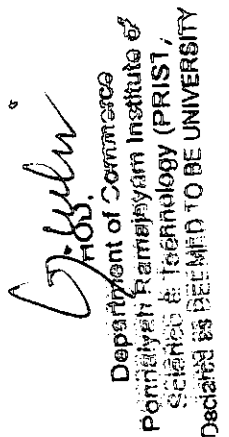 HOD,
Department of Commerce
Ponnaiyah Ramajayam Institute of
Science & Technology (PRIST)
Declared as DEEMED TO BE UNIVERSITY